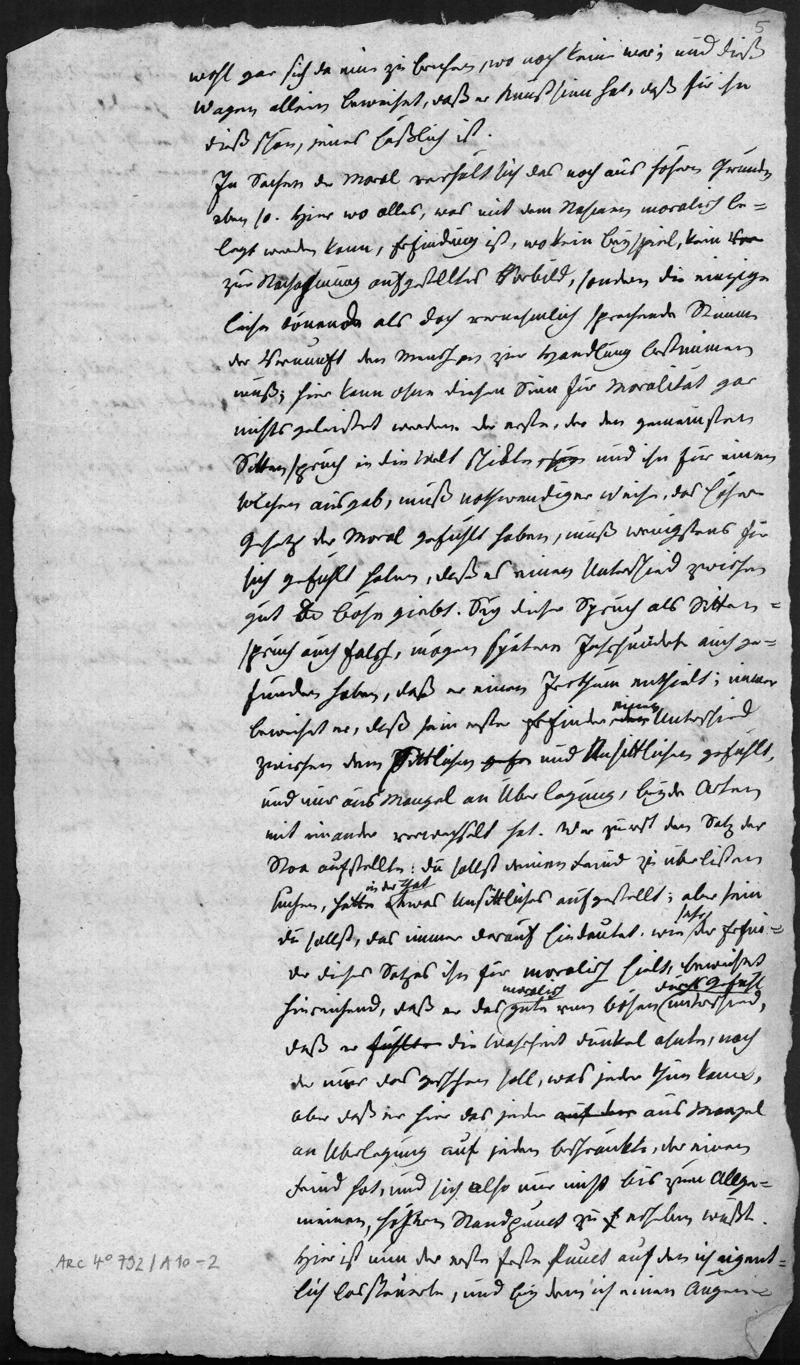 5
wohl gar sich da eine zu brechen, wo noch keine war; und dieß
Wagen allein beweiset, daß er Kunstsinn hat, daß für ihn
dieß schön, jenes häßlich ist.
In Sachen der Moral verhält sich das noch aus höhern Gründen
eben so. Hier wo alles, was mit dem Nahmen moralisch be=
legt werden kann, Erfindung ist, wo kein Beyspiel, kein Vor
zur Nachahmung aufgestelltes Vorbild, sondern die einzige
leise tönende als doch vernehmlich sprechende Stimme
der Vernunft den Menschen zur Handlung bestimmen
muß; hier kann ohne diesen Sinn für Moralität gar
nichts geleistet werden. Der erste, der den gemeinsten
Sittenspruch in die Welt schickte und ihn für einen
solchen ausgab, muß nothwendiger Weise, das höhere
Gesetz der Moral gefühlt haben, muß wenigstens für
sich gefühlt haben, daß es einen Unterschied zwischen
gut & böse giebt. Sey dieser Spruch als Sitten=
spruch auch falsch, mögen spätere Jahrhunderte auch ge=
funden haben, daß er einen Irrthum enthielt; immer
beweiset er, daß sein erster Erfinder einen Unterschied
zwischen dem Sittlichen und Unsittlichen gefühlt,
und nur aus Mangel an Überlegung, beyde Arten
mit einander verwechselt hat. Wer zuerst den Satz der
Stoa aufstellte: du sollst deinen Feind zu überlisten
suchen, hatte in der That etwas Unsittliches aufgestellt; aber sein
du sollst, das immer darauf hindeutet. wie sehr der Erfin=
der dieses Satzes ihn für moralisch hielt, beweiset
hinreichend, daß er das moralisch gute vom bösen durchs Gefühl unterschied,
daß er fühlte die Wahrheit dunkel ahnte, nach
der nur das geschehen soll, was jeder thun kann,
aber daß er hier das jeder auf den aus Mangel
an Überlegung auf jeden beschränkte, der einen
Feind hat, und sich also nur nicht bis zum Allge=
meinen, höhern Standpunct zu erheben wußte.
Hier ist nun der erste feste Punct auf den ich eigent=
lich lossteuerte, und bey dem ich einen Augen=
ARC 4° 792 / A 10-2